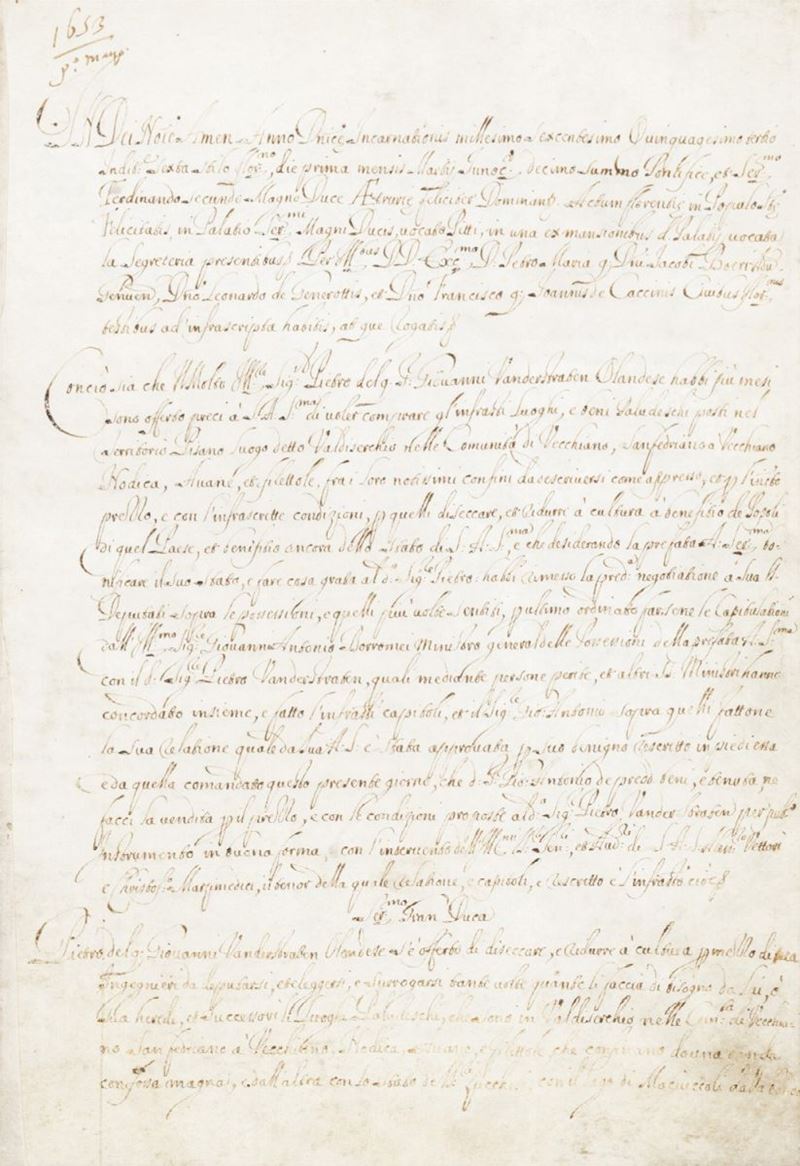 1653
p.º magg.º
IN Dei Noie Amen Anno Dnice Incarnationis millesimo sexcentesimo Quinquagesimo tertio
Indit.e sexta stilo flor.no, die prima mensis Maij Innoc.º decimo summo Pontifice, et Ser.mo
Ferdinando secundo Magno Duce Aetrurie feliciter Dominant. Actum florentie in Populo S.te
Felicitatis, in Palatio Ser.mi Magni Ducis, vocato Pitti, in una ex mansionibus d. Palatij vocata
la Segreteria presentibus Per Ill.bus D.D. Exc.mo D. Petro Maria q. Dni Jacobi
Genuen, Dno Leonardo de, et Dno Francisco q. Joannis de Caccinis Civibus flor.nus
testibus ad infrascripta habitis, atque Rogatis
Conciò sia che Il Molto Ill.e Sig.r Pietro del q. S. Giovanni Vanderstraten Olandese habbi più mesi
sono offerto preci à S. A. S.ma di voler comprare gl'infratti luoghi, e beni Paludeschi posti nel
Territorio Pisano luogo detto Valdiserchio nelle Comunità di Vecchiano, San fedriano à Vecchiano
Nodica, Avane, et filettole, fra i loro notissimi confini da descriversi come appresso, et p l'
prezzo, e con l'infrascritte condizioni, p quelli diseccare, et ridurre à cultura à benefitio de Popoli
di quel Paese, et benifitio ancora dello stato di S. A. S.ma, e che desiderando la prefata A. Ser.ma bo-
nificare il suo stato, e fare cosa grata al d.º Sig.re Pietro habbi rimesso la pred.a negotiatione à sua
Deputati sopra le possessioni, e quelli più volte sentiti, p ultimo ordinato farsene le Capitulationi
dall' Ill.mo Sig.re Giovann Antonio Borromei Ministro general delle Possessioni della prefata A. S.ma
con il d.º Sig.re Pietro Vanderstraten, quali mediante persone perite, et altri Ministri hanno
concordato insieme, e fatto l'infratti capitoli, et il Sig.re Gio: Antonio sopra quelli fattone
la sua relatione quale da sua A. S. è stata approvata p suo benigno rescritto in piè di essa
e da quella comandato questo presente giorno, che d. S.r Gio: Antonio de pred.i beni, e tenuta ne
facci la vendita p il prezzo, e con le condizioni proposte al d.º Sig.re Pietro Vander straten per pub.º
Instrumento in buona forma, con l'intervento dell', et Aud.ri di S. A. S. Vettori
e Christof.º Marzimedici, il tenor della quale relatione, e capitoli, e rescritto è l'infratto cioè
Ser.mo Gran Duca
Pietro del q. Giovanni Vanderstraten Olandese s'è offerto di diseccare, e ridurre à cultura p mezzo di sua
Ingegnieri da deputarsi, et eleggersi, e surrogarsi tante volte quante li faccia di bisogno da lui, ò
sua herede, et successori li luoghi Paludeschi, che sono in Valdiserchio nelle Com.tà di Vecchia-
no San fedriano à Vecchiano, Nodica, Avane, e filettole che confinano da una banda
con fossa magna, e dall'altra con lo stato de, con il lago di Maciuccoli dalla